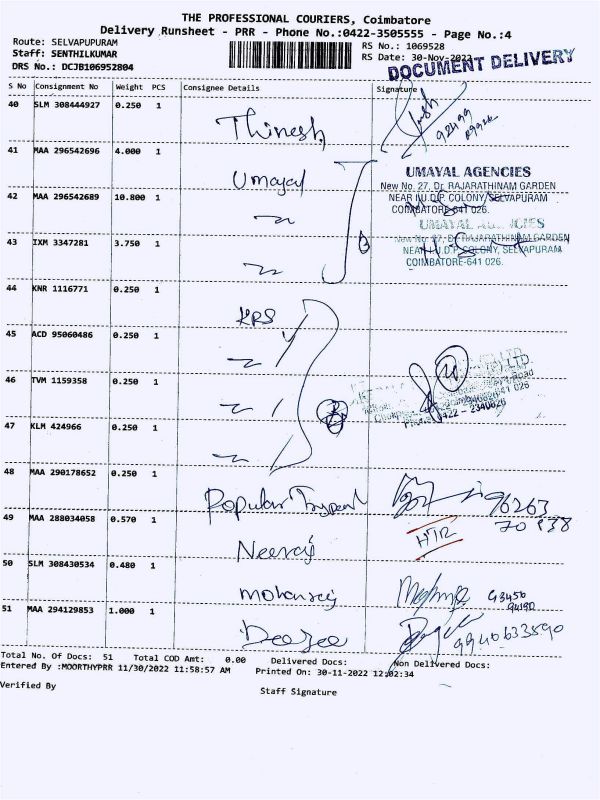 THE PROFESSIONAL COURIERS, Coimbatore
Delivery Runsheet - PRR - Phone No.:0422-3505555 - Page No.:4
Route: SELVAPUPURAM
RS No.: 1069528
Staff: SENTHILKUMAR
RS Date: 30-Nov-2022
DRS No.: DCJB106952804
DOCUMENT DELIVERY
S No Consignment No Weight PCS Consignee Details Signature
40 SLM 308444927 0.250 1 Thinesh
41 MAA 296542696 4.000 1 Umayal
UMAYAL AGENCIES
New No. 27, Dr. RAJARATHINAM GARDEN
NEAR I.U.D.P. COLONY, SELVAPURAM
COIMBATORE-641 026.
42 MAA 296542689 10.800 1
UMAYAL AGENCIES
New No. 27, Dr. RAJARATHINAM GARDEN
NEAR I.U.D.P. COLONY, SELVAPURAM
COIMBATORE-641 026.
43 IXM 3347281 3.750 1
44 KNR 1116771 0.250 1 KRS
45 ACD 95060486 0.250 1
46 TVM 1159358 0.250 1
47 KLM 424966 0.250 1
48 MAA 290178652 0.250 1 Popular
96263
70938
49 MAA 288034058 0.570 1 Neeraj
HTR
50 SLM 308430534 0.480 1 mohanraj
51 MAA 294129853 1.000 1 Deejee
9940633590
Total No. Of Docs: 51 Total COD Amt: 0.00 Delivered Docs: Non Delivered Docs:
Entered By :MOORTHYPRR 11/30/2022 11:58:57 AM Printed On: 30-11-2022 12:02:34
Verified By Staff Signature